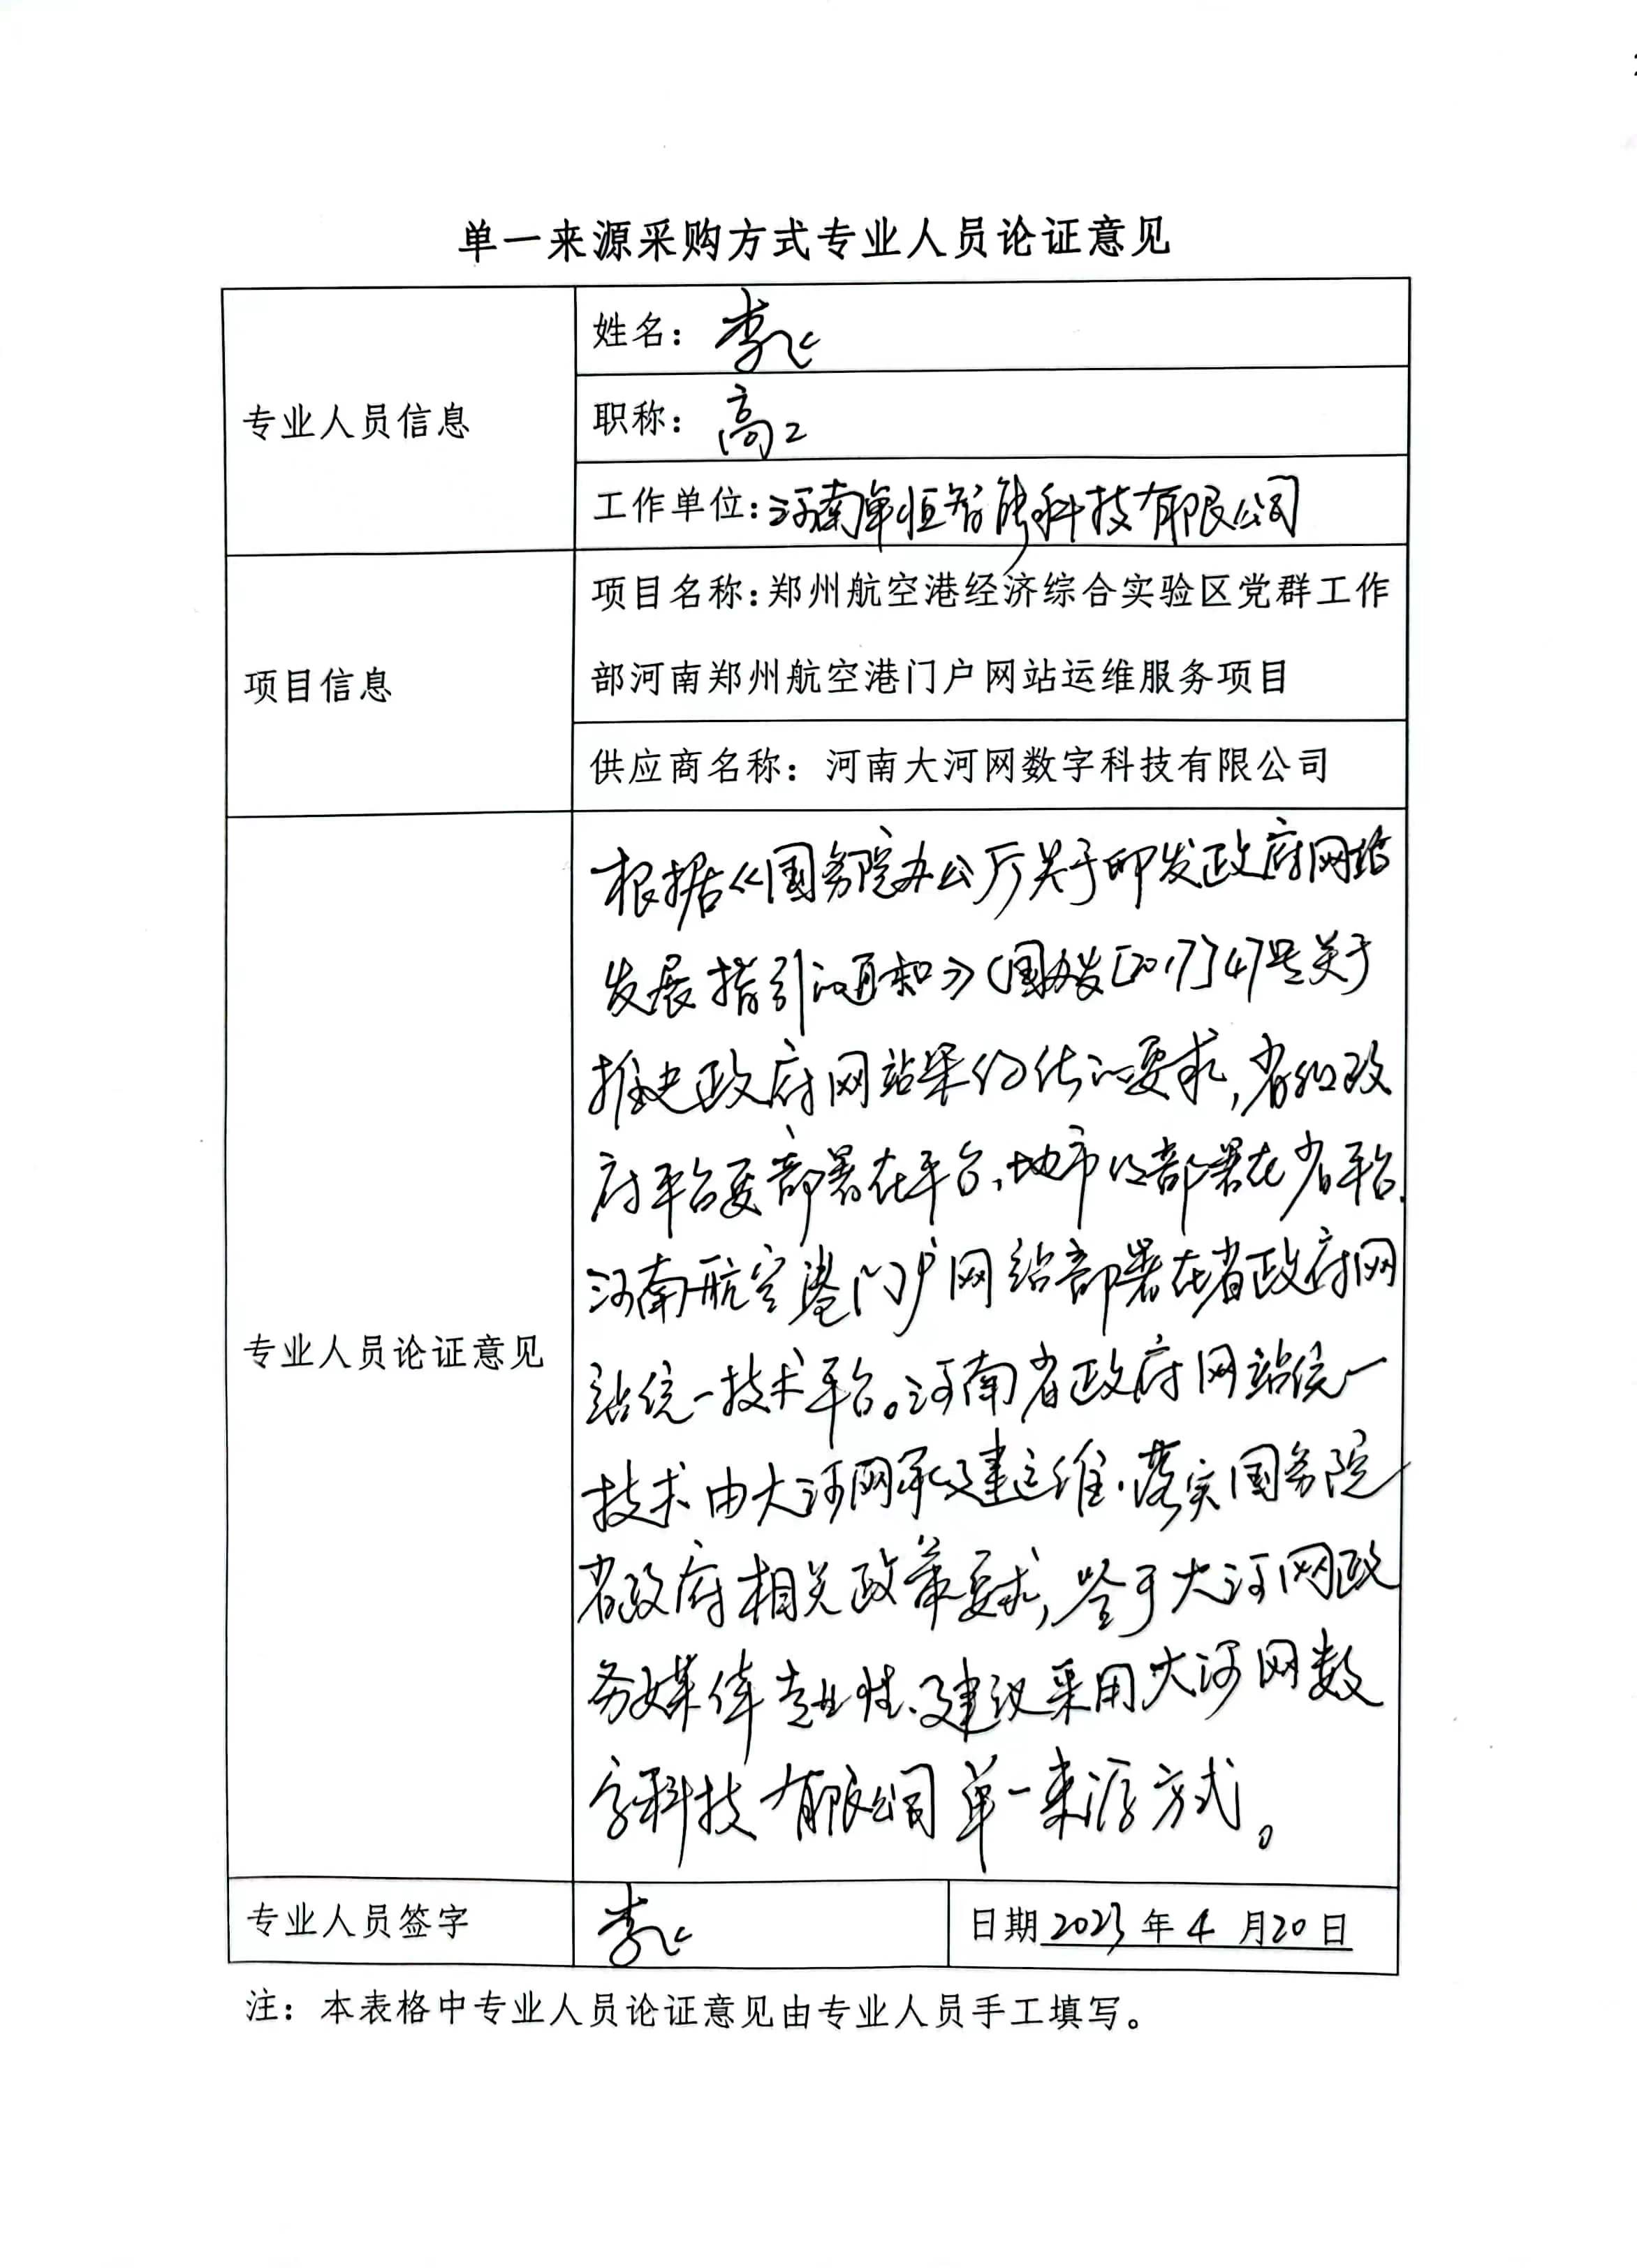 单一来源采购方式专业人员论证意见
专业人员信息
姓名：李飞
职称：高工
工作单位：河南单恒智能科技有限公司
项目信息
项目名称：郑州航空港经济综合实验区党群工作
部河南郑州航空港门户网站运维服务项目
供应商名称：河南大河网数字科技有限公司
专业人员论证意见
根据《国务院办公厅关于印发政府网站
发展指引的通知》（国办发［2017］47号关于
推进政府网站集约化的要求，省级政
府平台要部署在平台、地市级部署在省平台.
河南航空港门户网站部署在省政府网
站统一技术平台。河南省政府网站统一
技术由大河网承建运维.落实国务院
省政府相关政策要求，鉴于大河网政
务媒体专业性、建议采用大河网数
字科技有限公司单一来源方式。
专业人员签字
李飞
日期 2023 年 4 月 20 日
注：本表格中专业人员论证意见由专业人员手工填写。